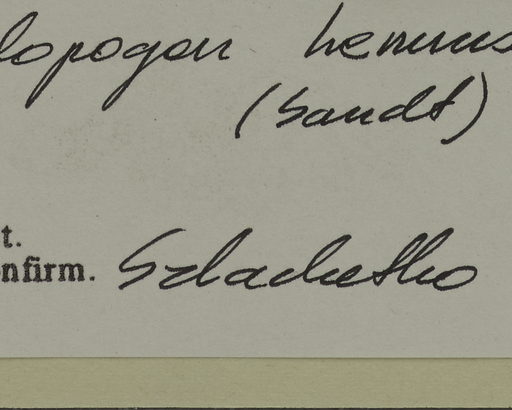 lopogon
(Sandt)
t.
nfirm. Szlachetko